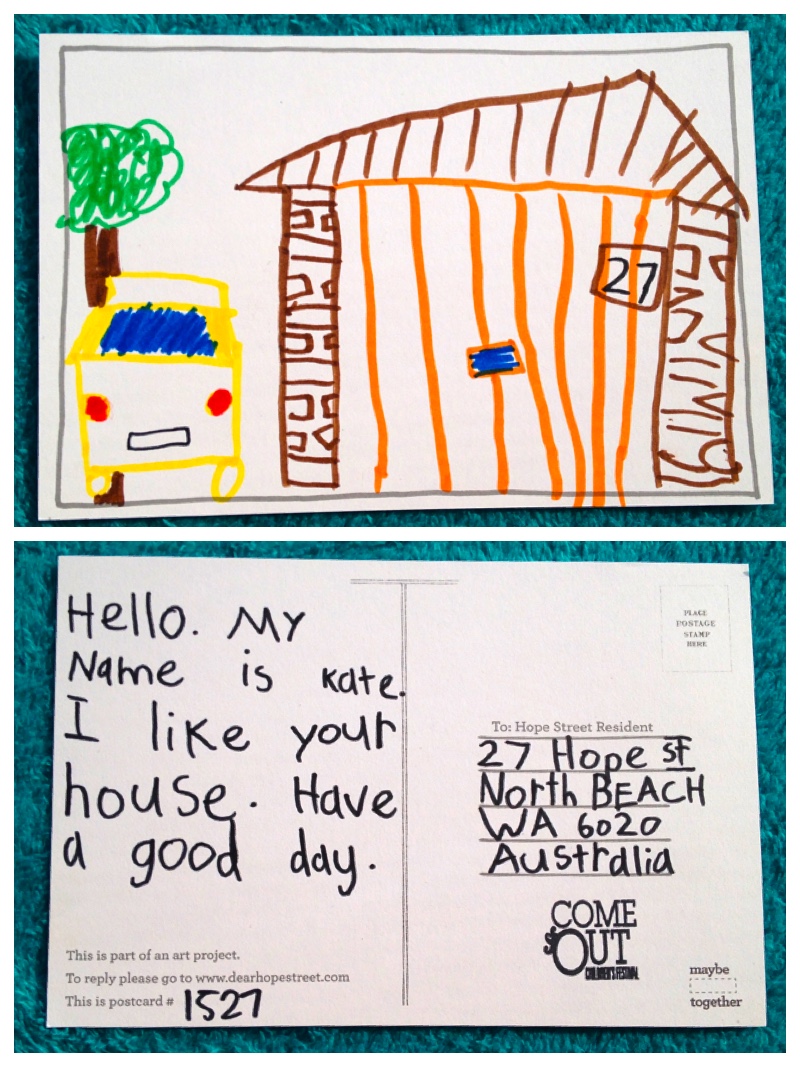 27
Hello. My
Name is Kate.
I like your
house. Have
a good day.
This is part of an art project.
To reply please go to www.dearhopestreet.com
This is postcard # 1527
PLACE
POSTAGE
STAMP
HERE
To: Hope Street Resident
27 Hope st
North BEACH
WA 6020
Australia
COME
OUT
CHILDREN'S FESTIVAL
maybe
together